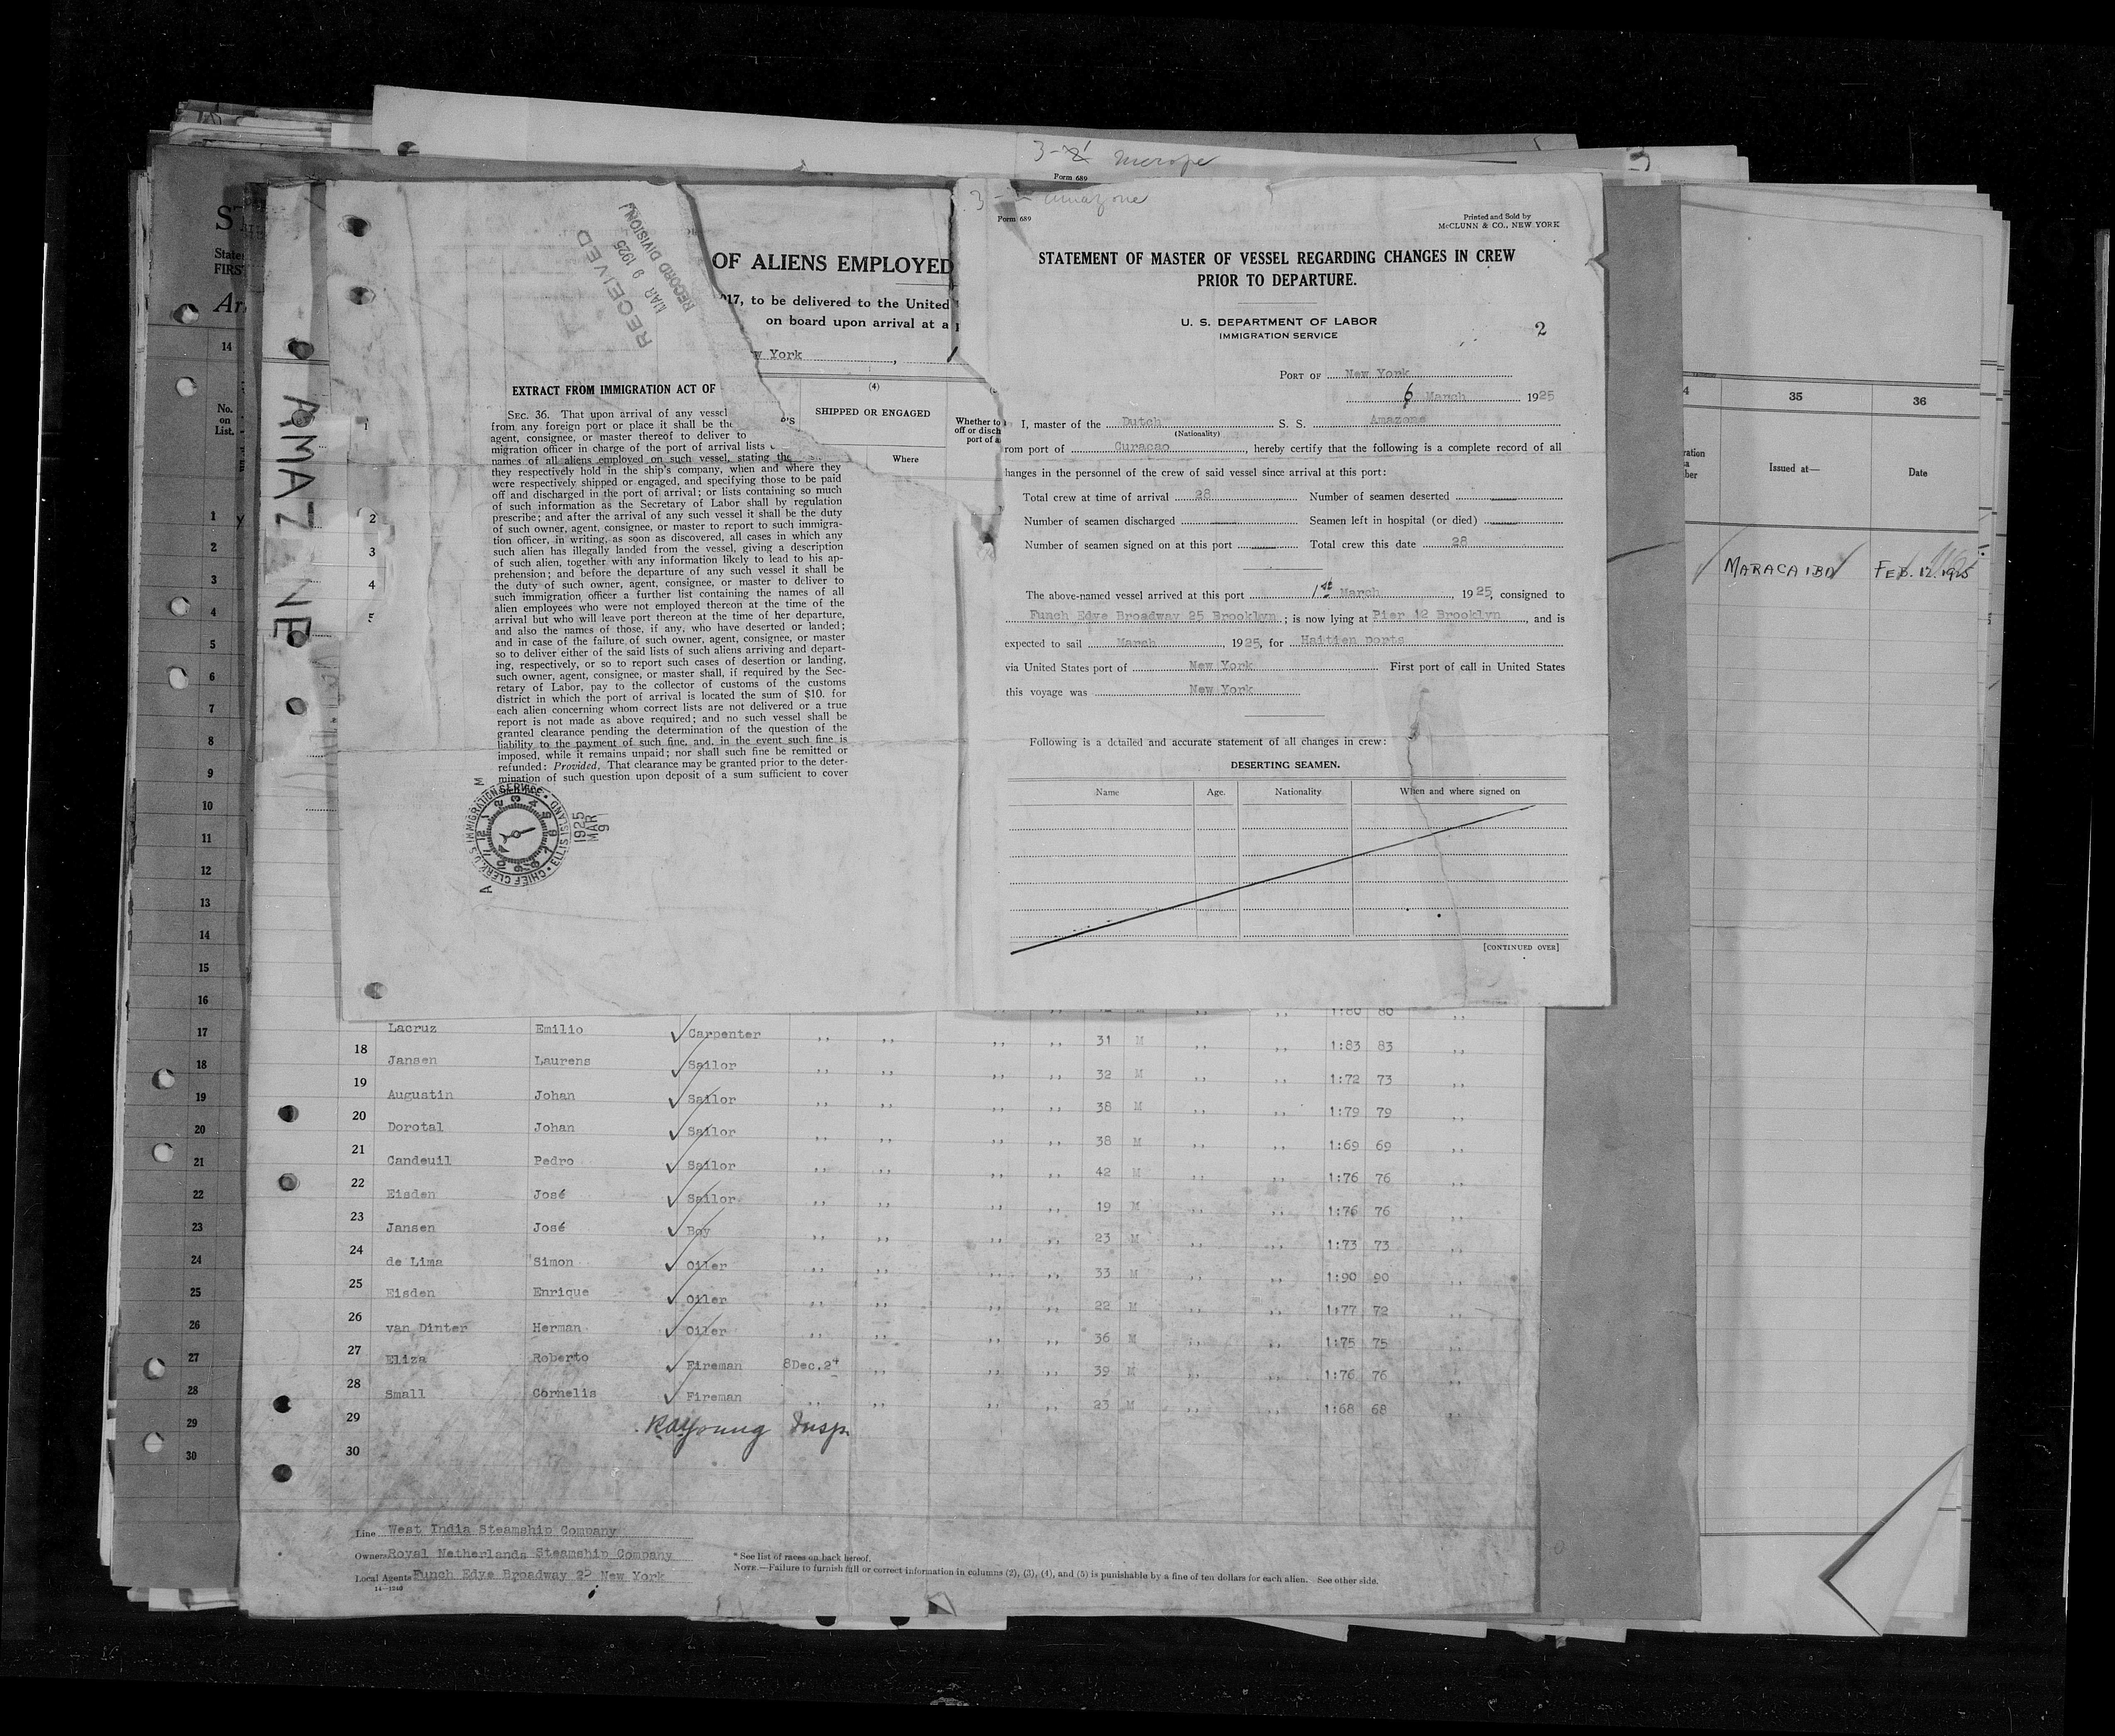 3-1 Merope
Form 689
3- Amazone
Form 689
Printed and Sold by
McCLUNN & CO., NEW YORK
STATEMENT OF MASTER OF VESSEL REGARDING CHANGES IN CREW
PRIOR TO DEPARTURE.
U. S. DEPARTMENT OF LABOR
IMMIGRATION SERVICE
2
PORT OF New York
6 March 1925
I, master of the Dutch S. S. Amazone
(Nationality)
rom port of Curacao, hereby certify that the following is a complete record of all
hanges in the personnel of the crew of said vessel since arrival at this port:
Total crew at time of arrival 28 Number of seamen deserted
Number of seamen discharged Seamen left in hospital (or died)
Number of seamen signed on at this port Total crew this date 28
The above-named vessel arrived at this port 1st March, 1925, consigned to
Funch Edye Broadway 25 Brooklyn; is now lying at Pier 12 Brooklyn, and is
expected to sail March, 1925, for Haitien ports
via United States port of New York First port of call in United States
this voyage was New York
Following is a detailed and accurate statement of all changes in crew:
DESERTING SEAMEN.
Name Age. Nationality When and where signed on
[CONTINUED OVER]
RECEIVED
MAR 9 1925
RECORD DIVISION
OF ALIENS EMPLOYED
917, to be delivered to the United
on board upon arrival at a
w York
(4)
SHIPPED OR ENGAGED
Where
Whether to
off or disch
port of a
EXTRACT FROM IMMIGRATION ACT OF
SEC. 36. That upon arrival of any vessel
from any foreign port or place it shall be the
agent, consignee, or master thereof to deliver to
migration officer in charge of the port of arrival lists
names of all aliens employed on such vessel, stating the
they respectively hold in the ship's company, when and where they
were respectively shipped or engaged, and specifying those to be paid
off and discharged in the port of arrival; or lists containing so much
of such information as the Secretary of Labor shall by regulation
prescribe; and after the arrival of any such vessel it shall be the duty
of such owner, agent, consignee, or master to report to such immigra-
tion officer, in writing, as soon as discovered, all cases in which any
such alien has illegally landed from the vessel, giving a description
of such alien, together with any information likely to lead to his ap-
prehension; and before the departure of any such vessel it shall be
the duty of such owner, agent, consignee, or master to deliver to
such immigration officer a further list containing the names of all
alien employees who were not employed thereon at the time of the
arrival but who will leave port thereon at the time of her departure,
and also the names of those, if any, who have deserted or landed;
and in case of the failure of such owner, agent, consignee, or master
so to deliver either of the said lists of such aliens arriving and depart-
ing, respectively, or so to report such cases of desertion or landing,
such owner, agent, consignee, or master shall, if required by the Sec-
retary of Labor, pay to the collector of customs of the customs
district in which the port of arrival is located the sum of $10. for
each alien concerning whom correct lists are not delivered or a true
report is not made as above required; and no such vessel shall be
granted clearance pending the determination of the question of the
liability to the payment of such fine, and, in the event such fine is
imposed, while it remains unpaid; nor shall such fine be remitted or
refunded: Provided, That clearance may be granted prior to the deter-
mination of such question upon deposit of a sum sufficient to cover
U.S. IMMIGRATION SERVICE • ELLIS ISLAND • CHIEF CLERK
1925
MAR
9
AMAZONE
State
FIRST
14
No.
on
List.
1
2
3
4
5
6
7
8
9
10
11
12
13
14
15
16
17
18
19
20
21
22
23
24
25
26
27
28
29
30
1
2
3
4
35 36
Issued at— Date
MARACAIBO FEB. 12. 1925
1:80 80
Lacruz Emilio Carpenter ,, ,, ,, ,, 31 M ,, ,, 1:83 83 ,,
18 Jansen Laurens Sailor ,, ,, ,, ,, 32 M ,, ,, 1:72 73 ,,
19 Augustin Johan Sailor ,, ,, ,, ,, 38 M ,, ,, 1:79 79 ,,
20 Dorotal Johan Sailor ,, ,, ,, ,, 38 M ,, ,, 1:69 69 ,,
21 Candeuil Pedro Sailor ,, ,, ,, ,, 42 M ,, ,, 1:76 76 ,,
22 Eisden José Sailor ,, ,, ,, ,, 19 M ,, ,, 1:76 76 ,,
23 Jansen José Boy ,, ,, ,, ,, 23 M ,, ,, 1:73 73 ,,
24 de Lima Simon Oiler ,, ,, ,, ,, 33 M ,, ,, 1:90 90 ,,
25 Eisden Enrique Oiler ,, ,, ,, ,, 22 M ,, ,, 1:77 72 ,,
26 van Dinter Herman Oiler ,, ,, ,, ,, 36 M ,, ,, 1:75 75 ,,
27 Eliza Roberto Fireman 8Dec.24 ,, ,, ,, 39 M ,, ,, 1:76 76 ,,
28 Small Cornelis Fireman ,, ,, ,, ,, 23 M ,, ,, 1:68 68 ,,
29 RAYoung Insp.
30
Line West India Steamship Company
Owners Royal Netherlands Steamship Company
Local Agents Funch Edye Broadway 25 New York
14—1240
* See list of races on back hereof.
NOTE.—Failure to furnish full or correct information in columns (2), (3), (4), and (5) is punishable by a fine of ten dollars for each alien. See other side.